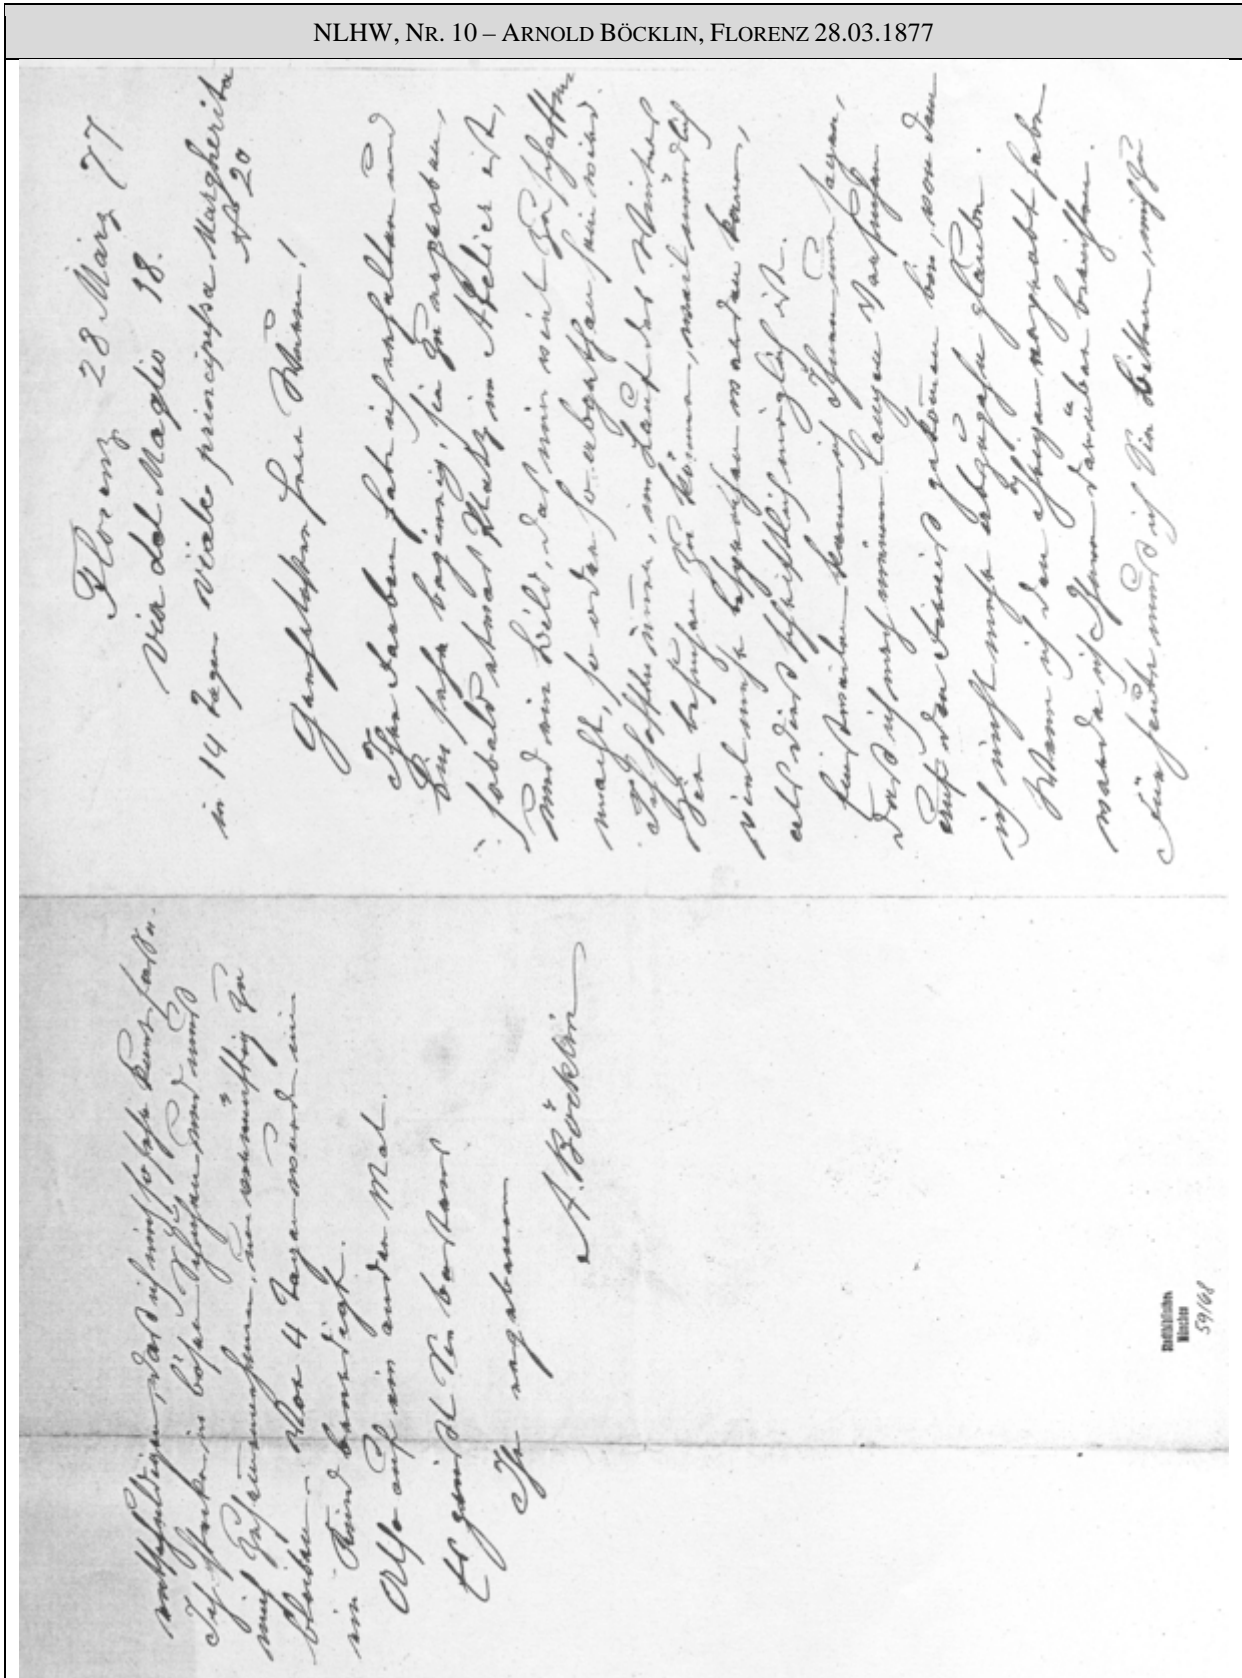 NLHW, NR. 10 – ARNOLD BÖCKLIN, FLORENZ 28.03.1877
Florenz 28 März 77
Via del Maglio 18.
in 14 Tagen Viale principessa Margherita
No 20
Geehrtester Herr Wurm!
Ihre Farben habe ich erhalten und
bin sehr begierig, sie zu erproben,
sobald etwas Platz im Atelier ist,
und ein Bild, das mir viel zu schaffen
macht, so oder so abgethan sein wird.
Ich hoffe immer, im Lauf des Winters
Sie besuchen zu können, weil mündlich
viel mehr besprochen werden kann,
als dies schriftlich möglich ist.
Einstweilen kann ich Ihnen nur sagen,
daß ich nach meinen langen Versuchen
auf den Firniß gekommen bin, von dem
ich nicht mehr abzugehen glaube.
Wenn ich den Ihrigen erprobt habe
werde ich Ihnen darüber berichten.
Für heute muß ich Sie bitten, mich zu
entschuldigen, daß ich mich so sehr kurz fasse.
Ich stecke in bösen Schuhen und muß
mich zusammennehmen, um vernünftig zu
bleiben. Vor 4 Tagen wurde mir
ein Kind beerdigt.
Also auf ein ander Mal.
Es grüßt Sie bestens
Ihr ergebener
A. Böcklin
Stadtbibliothek
München
59/68